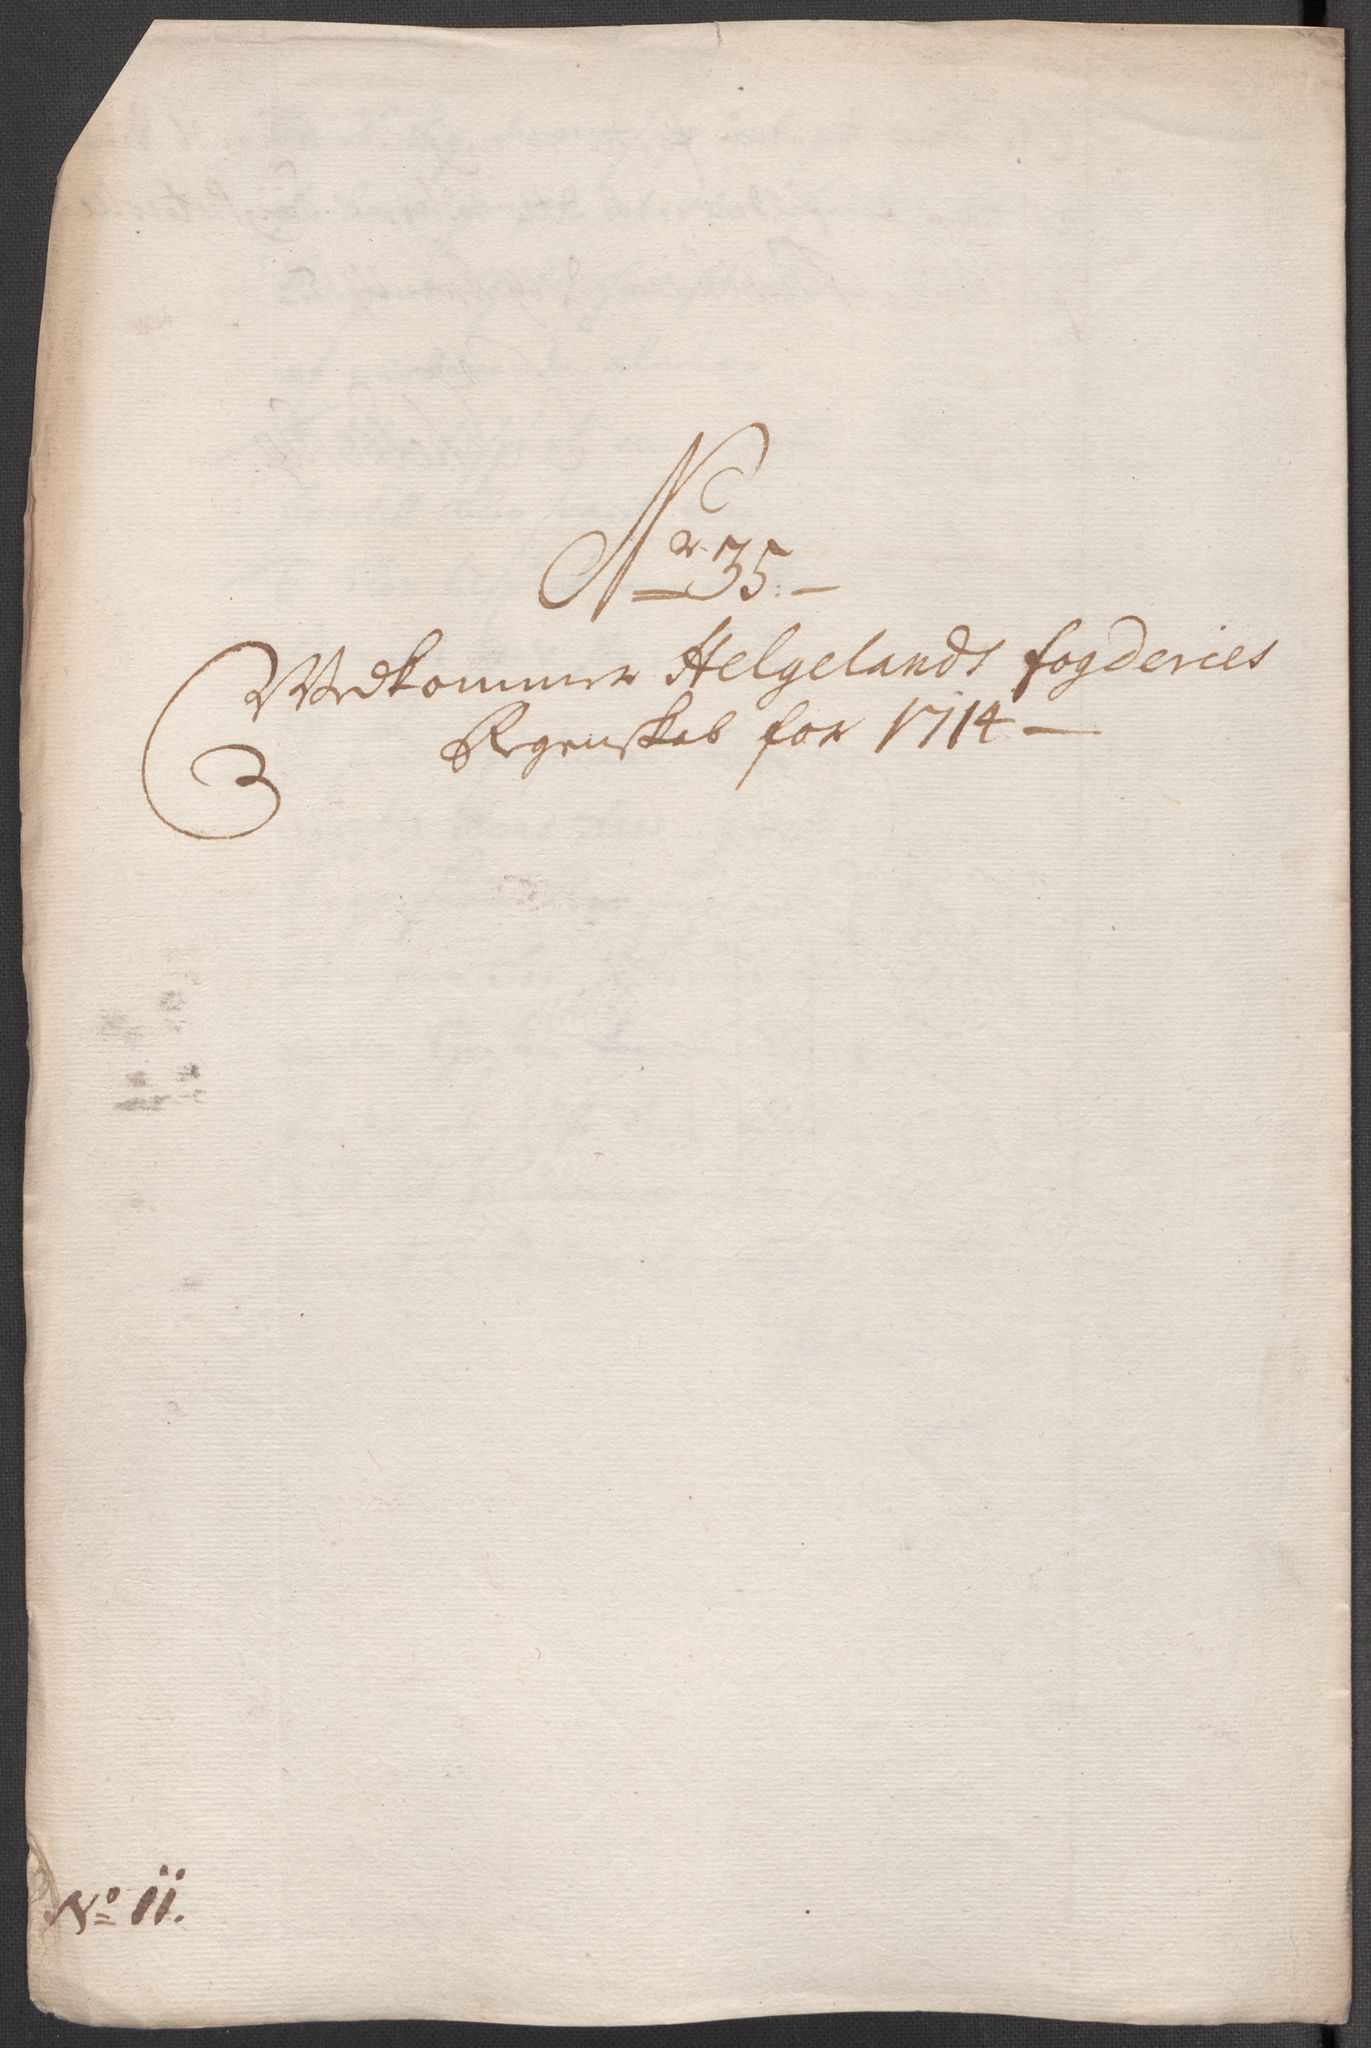 Nr 35.
Vedkommer Helgelands fogderies
Regenskab for 1714
No 11.